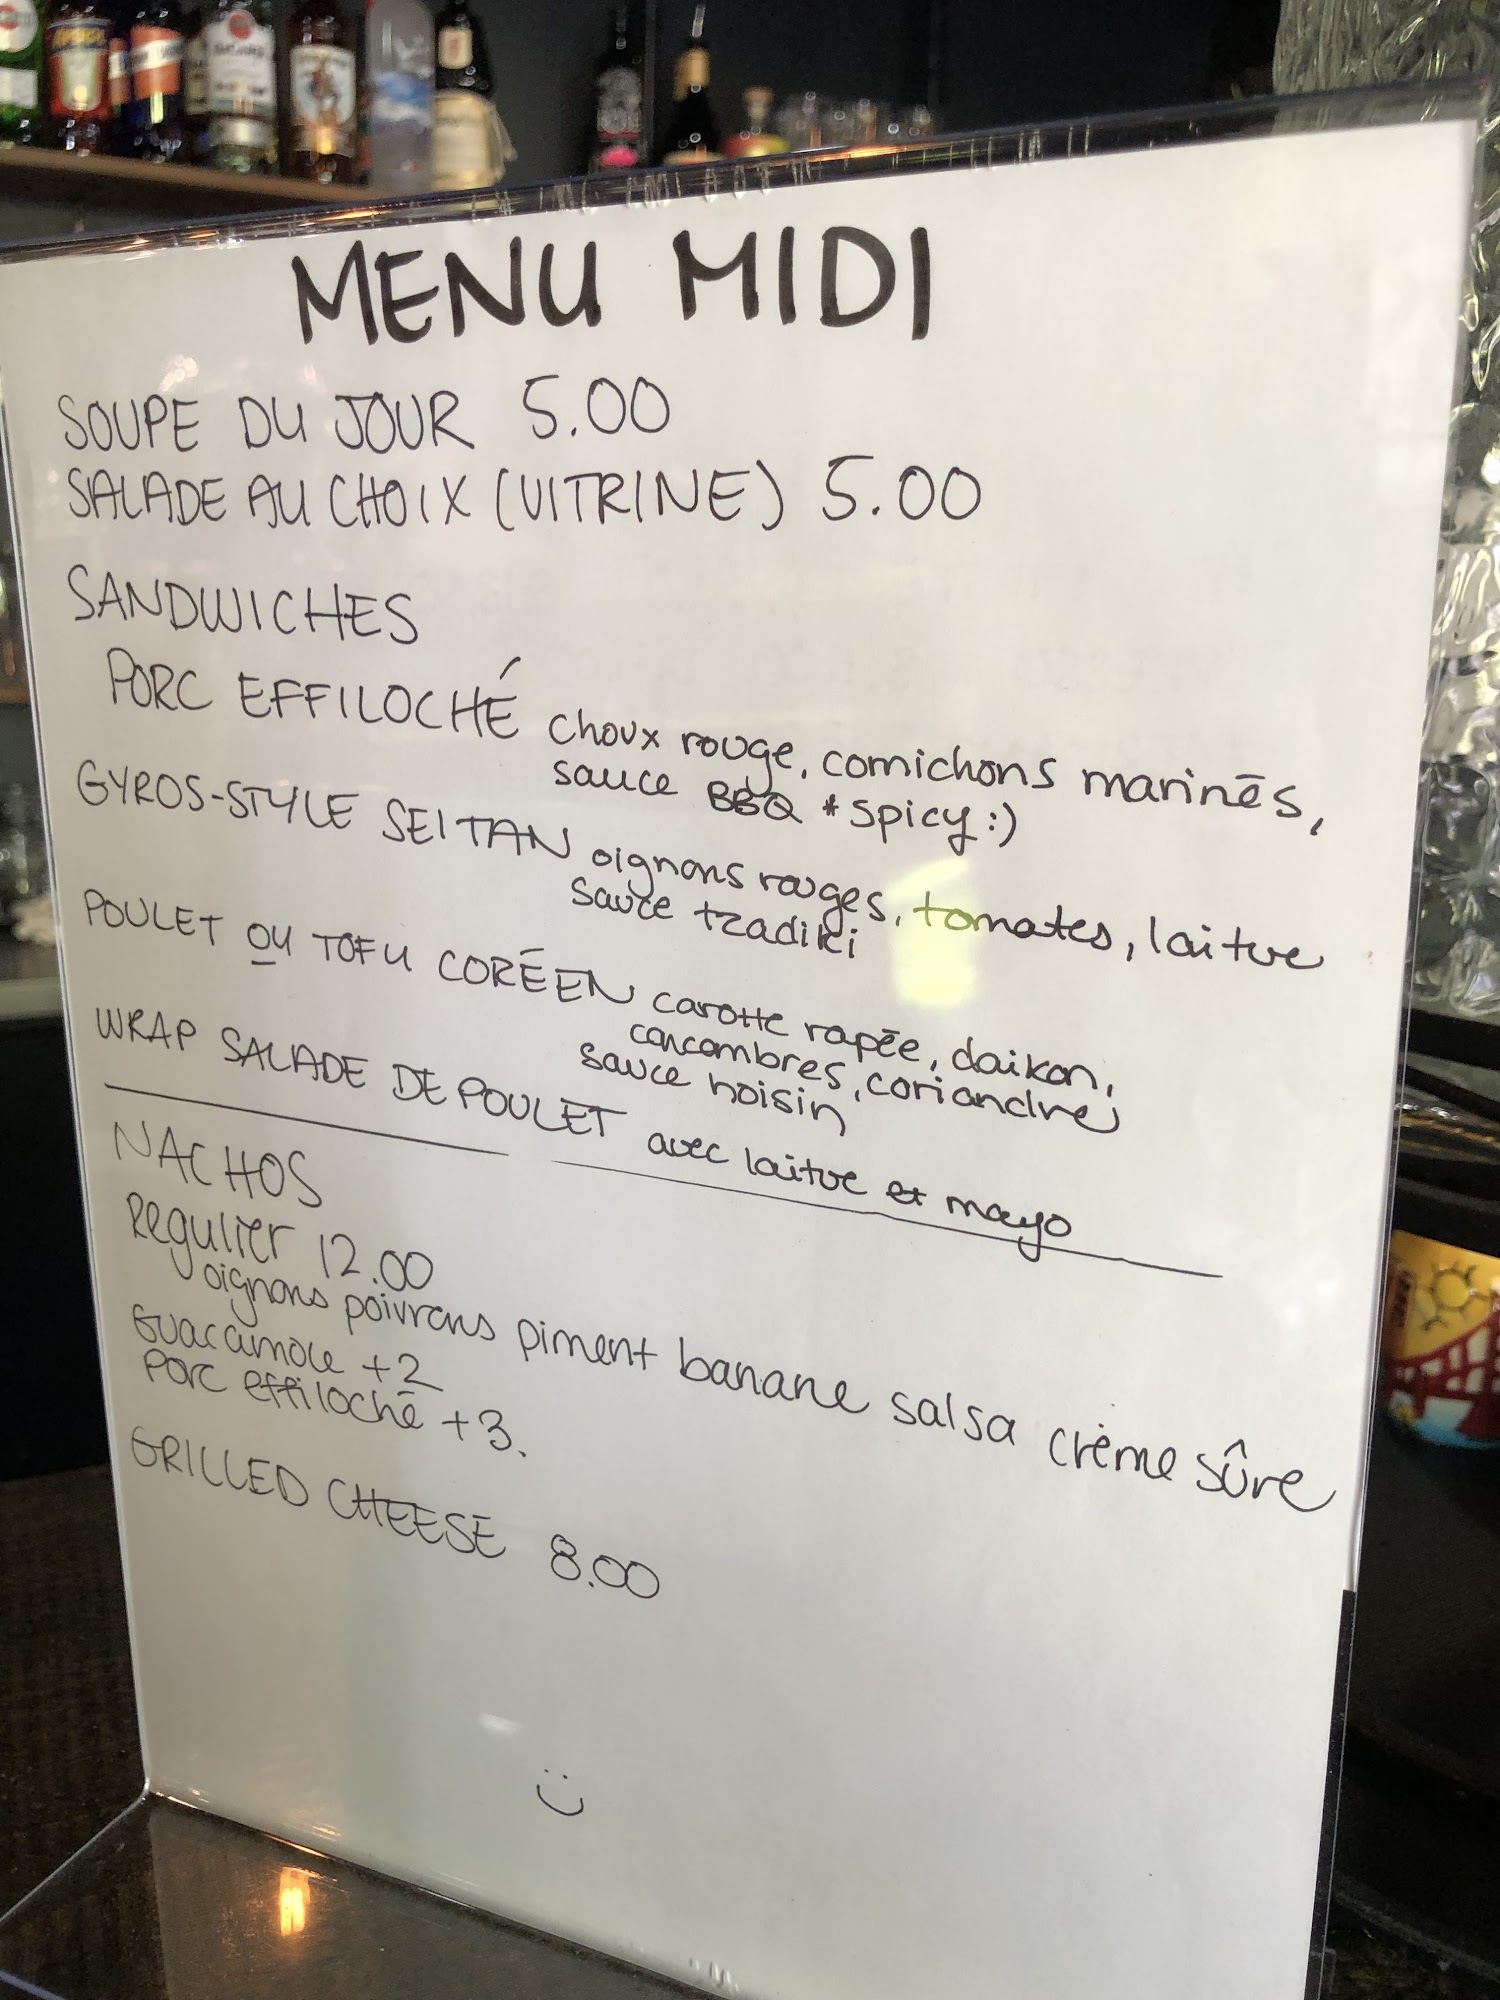 MENU MIDI
SOUPE DU JOUR 5.00
SALADE AU CHOIX (VITRINE) 5.00
SANDWICHES
PORC EFFILOCHÉ choux rouge, cornichons marinés,
sauce BBQ * spicy :)
GYROS-STYLE SEITAN oignons rouges, tomates, laitue
sauce tzadiki
POULET OU TOFU CORÉEN carotte rapée, daikon,
concombres, coriandre,
sauce hoisin
WRAP SALADE DE POULET avec laitue et mayo
NACHOS
Regulier 12.00
oignons poivrons piment banane salsa crème sûre
Guacamole +2
Porc effiloché +3.
GRILLED CHEESE 8.00